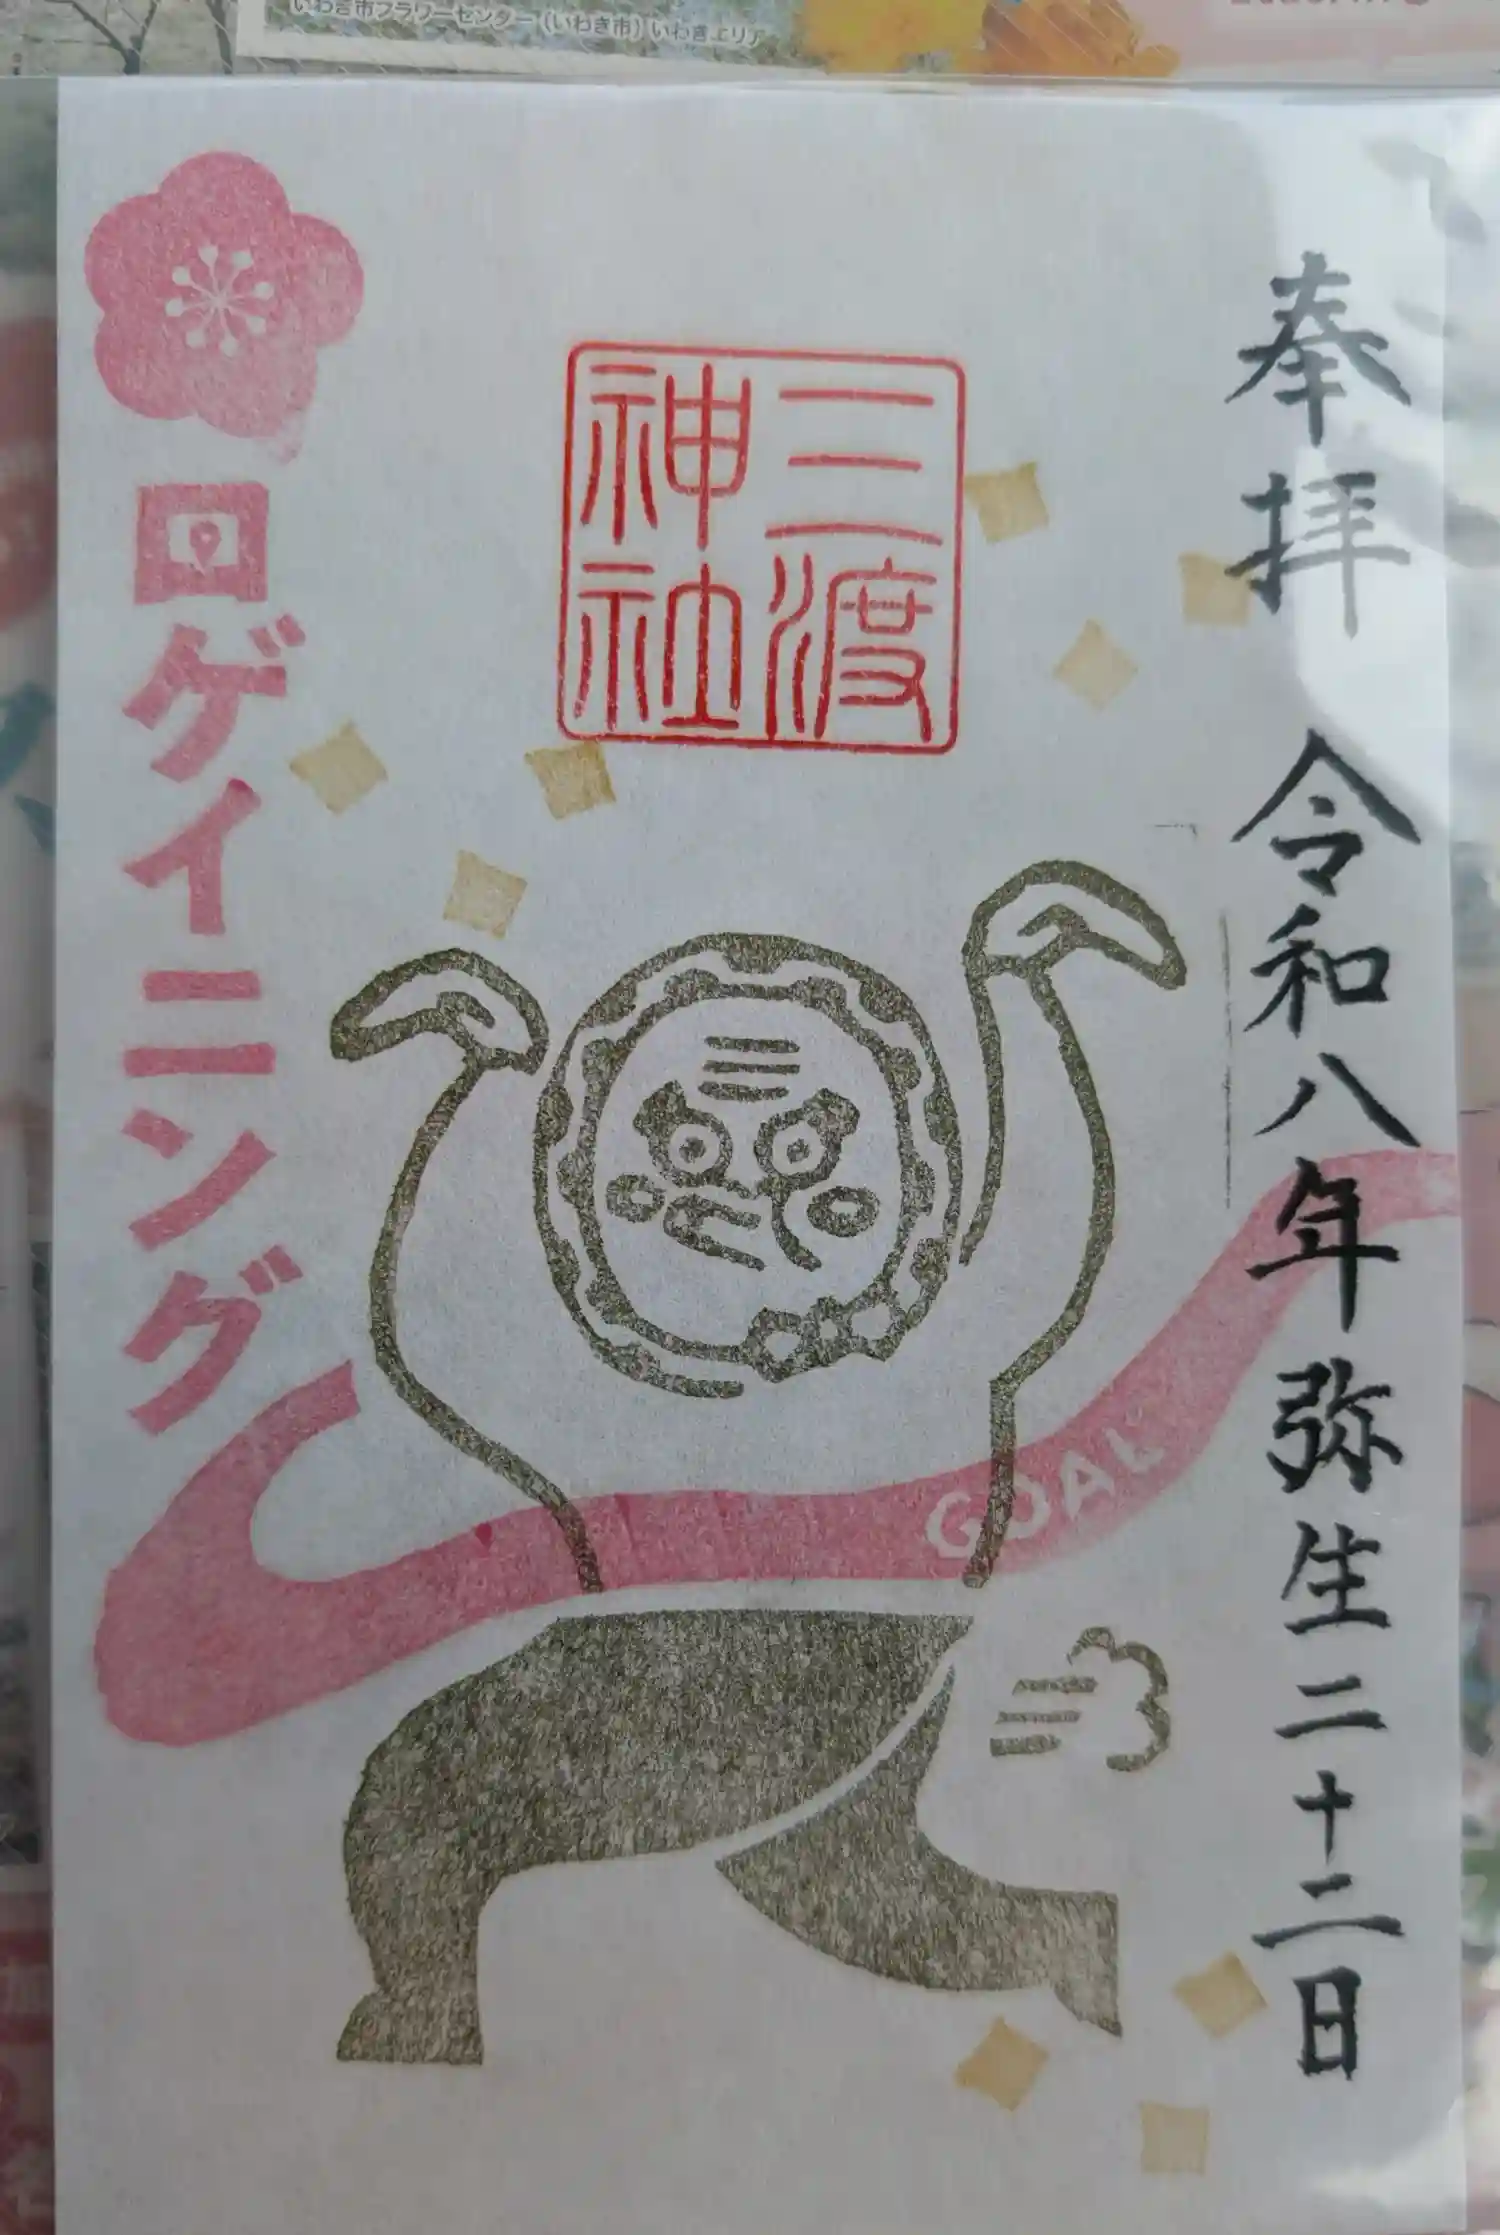 いわき市フラワーセンター（いわき市）いわきエリア
奉拝
令和八年弥生二十二日
三渡
神社
ロゲイニング
GOAL